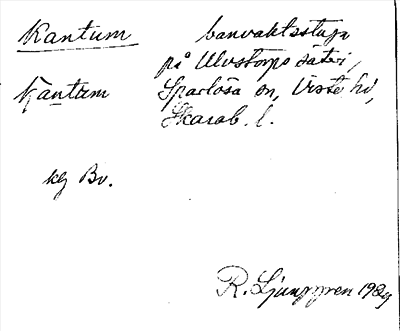 Kantum banvaktsstuga
på Ulvstorps säteri,
Kantum Sparlösa sn, Viste hd,
Skarab. l.
kg Bv.
R. Ljunggren 1929